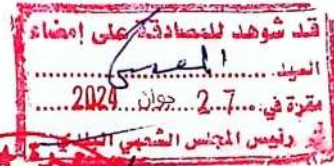 قد شوهد للمصادقة على إمضاء
السيد
مقرة في: 27 جوان 2024
رئيس المجلس الشعبي البلدي